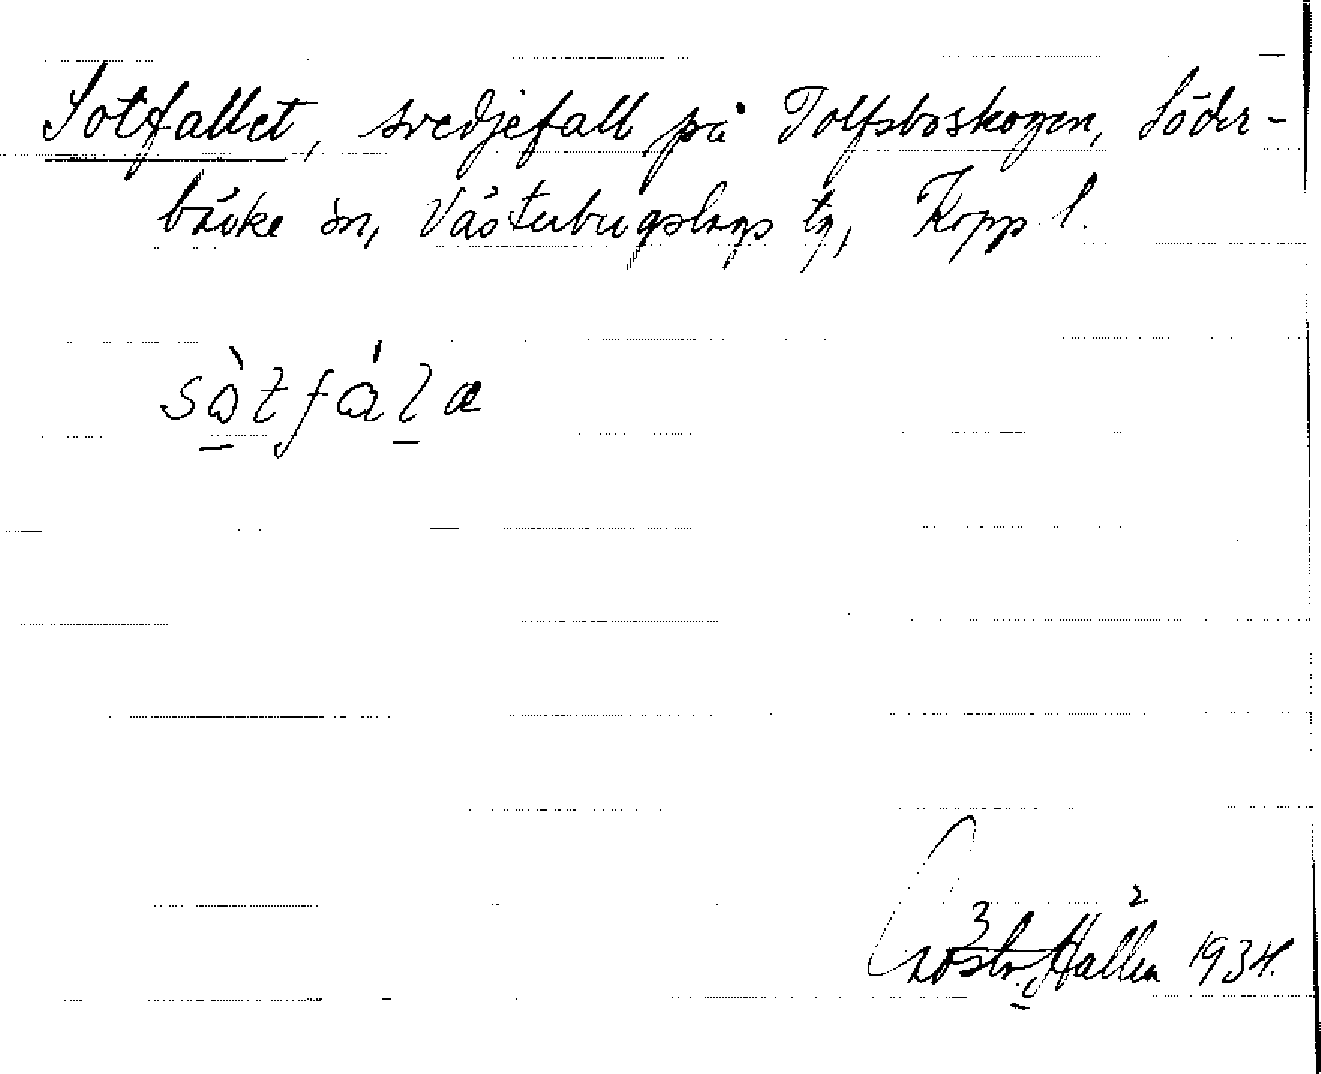 Sotfallet, svedjefall på Tolfsboskogen, Söder-
bärke sn, Västerbergslags tg, Kopp l.
sòtfála
Hallen 1934.